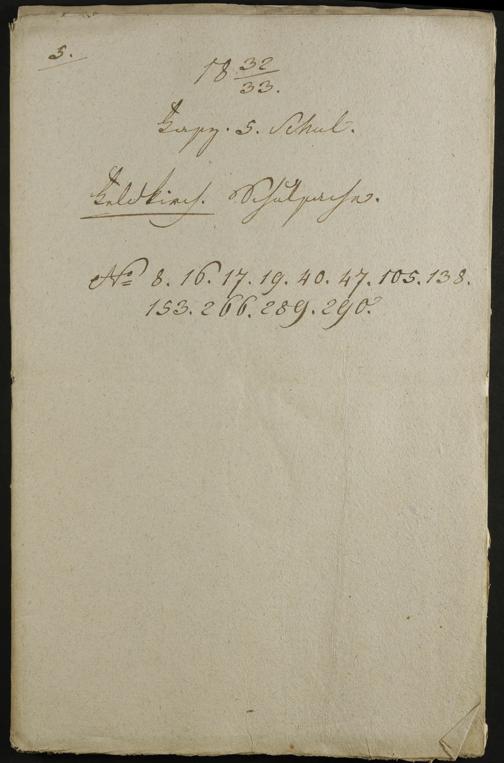 5.
18 32/33.
Fasz. 5. Schul.
Feldkirch. Schulsache.
No 8. 16. 17. 19. 40. 47. 105. 138.
153. 266. 289. 290.